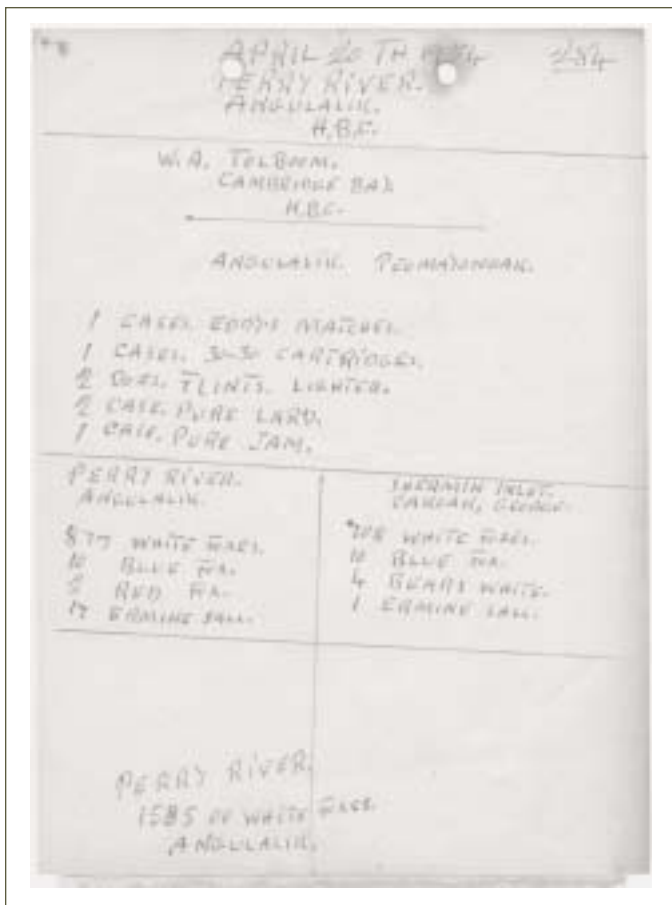 APRIL 20 TH
PERRY RIVER.
ANGULALIK.
H.B.C.
W.A. TOLBOOM.
CAMBRIDGE BAY.
H.B.C.
ANGULALIK.
1 CASES. EDDYS MATCHES.
1 CASES. 30-30 CARTRIDGES.
2 FLINTS. LIGHTER.
2 CASE. PURE LARD.
1 CASE. PURE JAM.
PERRY RIVER.
ANGULALIK.
877 WHITE FOXES.
10 BLUE FOX.
RED FOX.
17 ERMINE
SHERMIN INLET.
GEORGE.
708 WHITE FOXES.
10 BLUE FOX.
4 BEARS WHITE.
1 ERMINE
PERRY RIVER.
1585 OF WHITE FOXES.
ANGULALIK.